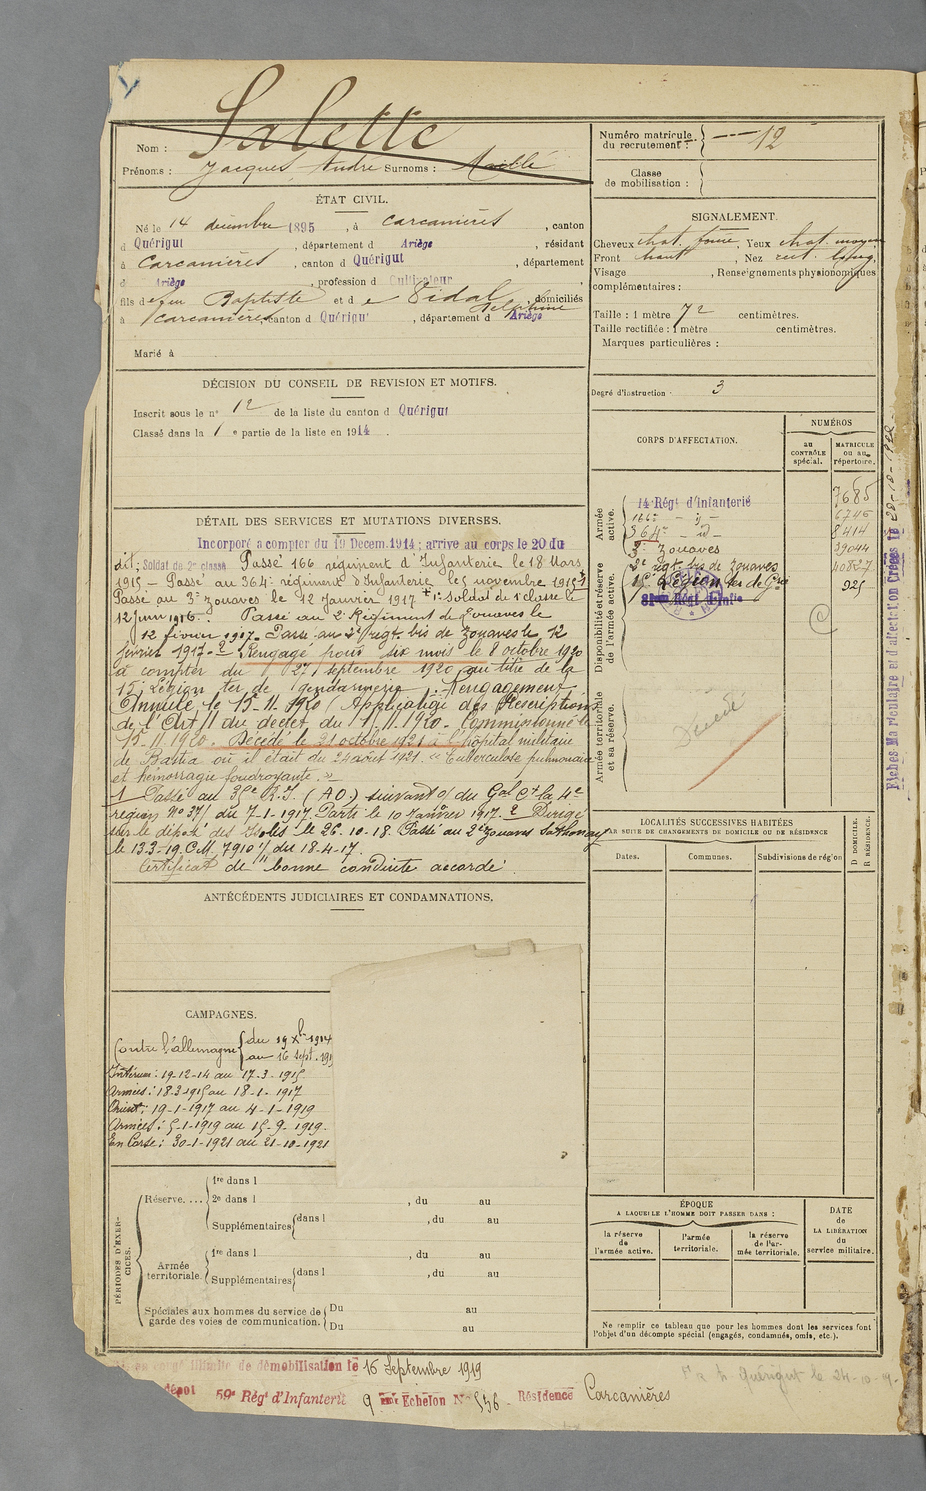 Salette
Nom :
Prénoms : Jacques André Surnoms :
Numéro matricule du recrutement : 12
Classe de mobilisation :
ÉTAT CIVIL.
Né le 14 décembre 1895, à Carcanières, canton
d Quérigut, département d Ariège, résidant
à Carcanières, canton d Quérigut, département
d Ariège, profession d Cultivateur,
fils de feu Baptiste et de Vidal Delphine, domiciliés
à Carcanières, canton d Quérigut, département d Ariège
Marié à
SIGNALEMENT.
Cheveux chat. foncé, Yeux chat. moyen
Front haut, Nez rect. long,
Visage , Renseignements physionomiques
complémentaires :
Taille : 1 mètre 72 centimètres.
Taille rectifiée : 1 mètre centimètres.
Marques particulières :
Degré d'instruction : 3
DÉCISION DU CONSEIL DE REVISION ET MOTIFS.
Inscrit sous le n° 12 de la liste du canton d Quérigut
Classé dans la 1 e partie de la liste en 1914.
CORPS D'AFFECTATION.
NUMÉROS
au CONTRÔLE spécial.
MATRICULE ou au répertoire.
Armée active.
14e Régt d'Infanterie 7685
166e - d - 6746
364e - d - 8414
3e Zouaves 39044
2e régt. bis de Zouaves 40827
15e Légion ter de Grie 925
Disponibilité et réserve de l'armée active.
Armée territoriale et sa réserve.
Décédé
DÉTAIL DES SERVICES ET MUTATIONS DIVERSES.
Incorporé à compter du 19 Decem. 1914; arrivé au corps le 20 du
dit; Soldat de 2e classe Passé 166 régiment d'Infanterie le 18 Mars
1915 - Passé au 364e régiment d'Infanterie le 5 novembre 1915 +
Passé au 3e zouaves le 12 Janvier 1917 + 1° Soldat de 1e classe le
12 Juin 1916. Passé au 2e Régiment de Zouaves le
12 février 1917. Passé au 2e régt. bis de zouaves le 12
février 1917. 2 Rengagé pour six mois le 8 octobre 1920
à compter du 27 septembre 1920 au titre de la
15e Légion ter de gendarmerie. Rengagement
Annulé le 15-11-1920 (Application des Prescriptions
de l'Art 11 du decret du 1-11-1920. Commissionné le
15-11-1920. Décédé le 21 octobre 1921 à l'hôpital militaire
de Bastia où il était du 24 août 1921. "Tuberculose pulmonaire
et hémorragie foudroyante."
1 Passé au 35e R.I. (AO) suivant o/ du Gal Ct la 4e
région No 37/ du 7-1-1917. Parti le 10 Janvier 1917. 2 Dirigé
sur le dépôt des Isolés le 26-10-18. Passé au 2e zouaves Sathonay
le 13-3-19. C.M. 7910 1/ du 18-4-17.
Certificat de bonne conduite accordé.
LOCALITÉS SUCCESSIVES HABITÉES
PAR SUITE DE CHANGEMENTS DE DOMICILE OU DE RÉSIDENCE
Dates.
Communes.
Subdivisions de région
D DOMICILE.
R RÉSIDENCE.
ANTÉCÉDENTS JUDICIAIRES ET CONDAMNATIONS.
CAMPAGNES.
Contre l'allemagne du 19 Xbre 1914
au 16 sept. 191
Intérieur : 19-12-14 au 17-3-1915
Armées : 18-3-1915 au 18-1-1917
Orient : 19-1-1917 au 4-1-1919
Armées : 5-1-1919 au 15-9-1919
En Corse : 30-1-1921 au 21-10-1921
PÉRIODES D'EXERCICES.
Réserve....
1re dans l
2e dans l , du au
Supplémentaires dans l , du au
Armée territoriale.
1re dans l , du au
Supplémentaires dans l , du au
Spéciales aux hommes du service de garde des voies de communication.
Du au
Du au
ÉPOQUE
A LAQUELLE L'HOMME DOIT PASSER DANS :
la réserve de l'armée active.
l'armée territoriale.
la réserve de l'armée territoriale.
DATE de LA LIBÉRATION du service militaire.
Ne remplir ce tableau que pour les hommes dont les services font
l'objet d'un décompte spécial (engagés, condamnés, omis, etc.).
congé illimité de démobilisation le 16 Septembre 1919
dépôt 59e Rég' d'Infanterie 9 eme Echelon N° 556 Résidence Carcanières
Fiches Matriculaire et d'affectation Créées le 20-10-1922